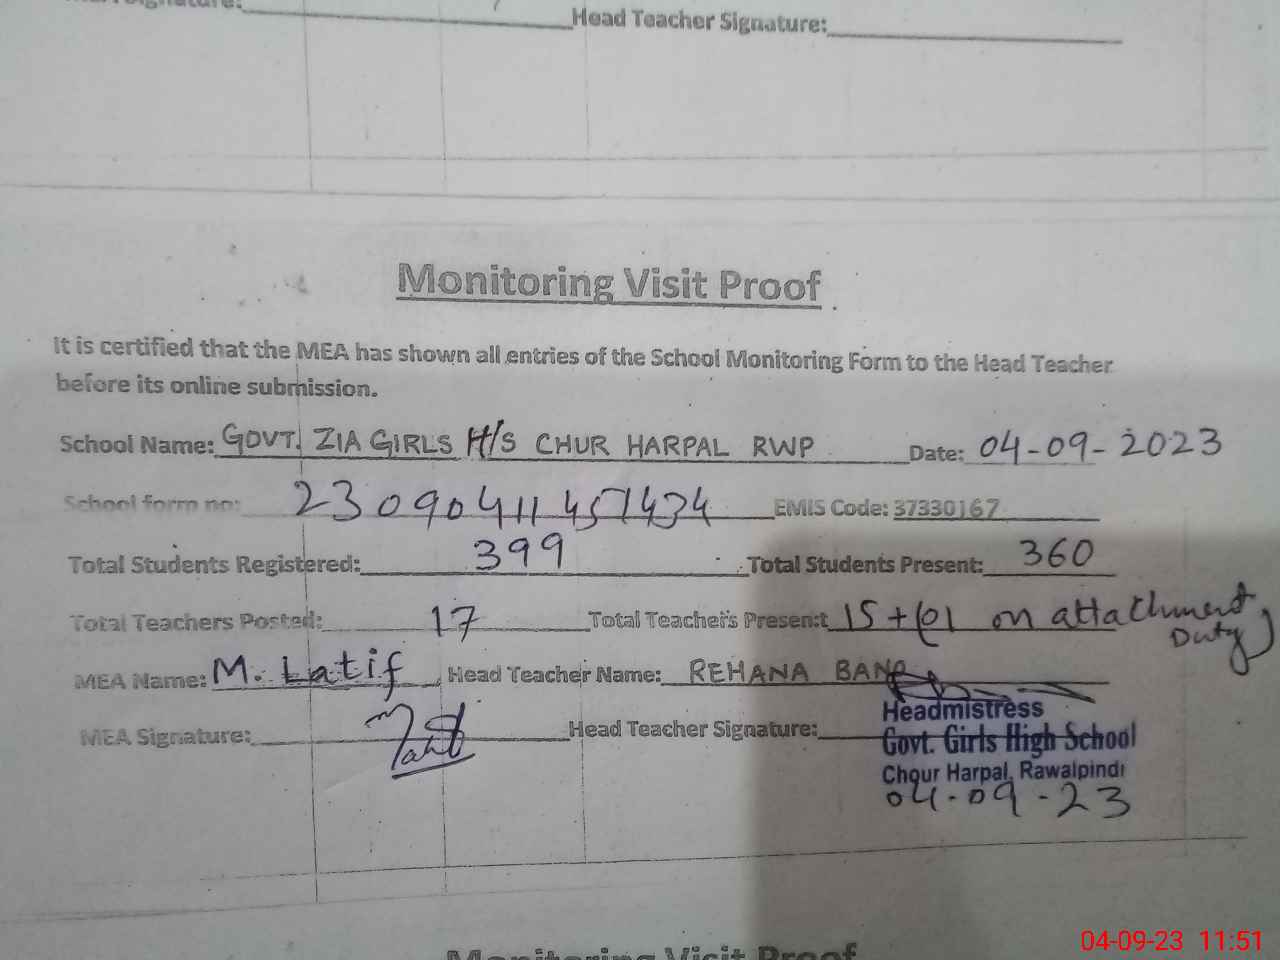 Head Teacher Signature:
Monitoring Visit Proof
It is certified that the MEA has shown all entries of the School Monitoring Form to the Head Teacher
before its online submission.
School Name: GOVT. ZIA GIRLS H/S CHUR HARPAL RWP Date: 04-09-2023
School form no: 230904114571434 EMIS Code: 37330167
Total Students Registered: 399 Total Students Present: 360
Total Teachers Posted: 17 Total Teachers Present 15+(01 on attachment
Duty)
MEA Name: M. Latif Head Teacher Name: REHANA BANO
MEA Signature: Head Teacher Signature:
Headmistress
Govt. Girls High School
Chour Harpal, Rawalpindi
04-09-23
Monitoring Visit Proof
04-09-23 11:51